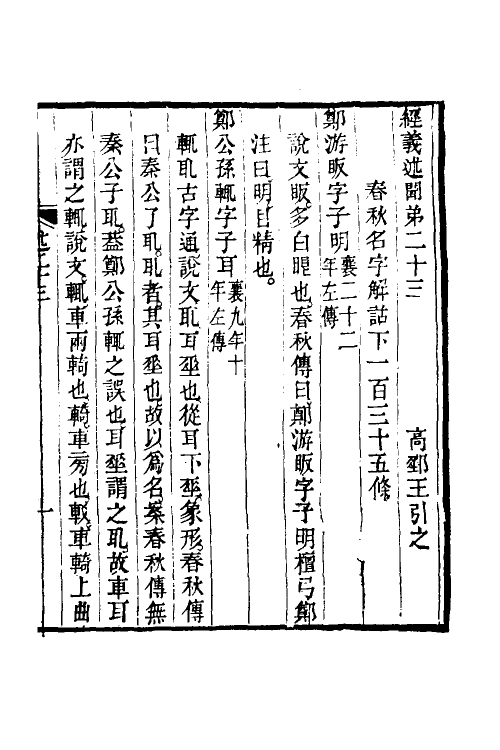 經義述聞弟二十三
高郵王引之
春秋名字解詁下一百三十五條
鄭游眅字子明襄二十二年左傳
說文眅多白眼也春秋傳曰鄭游眅字子明檀弓鄭
注曰明目精也。
鄭公孫輒字子耳襄九年十年左傳
輒耴古字通說文耴耳𠂹也從耳下𠂹象形春秋傳
曰秦公子耴耴者其耳𠂹也故以爲名案春秋傳無
秦公子耴葢鄭公孫輒之誤也耳𠂹謂之耴故車耳
亦謂之輒說文輒車兩輢也輢車㫄也車輢上曲
一